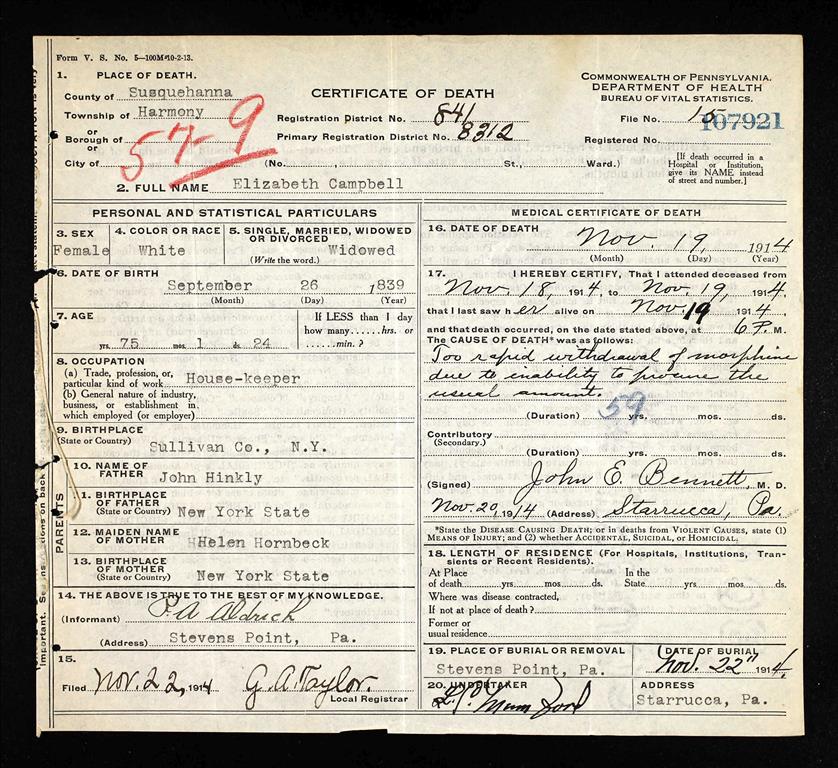 Form V. S. No. 5—100M-10-2-13.
1. PLACE OF DEATH.
County of Susquehanna
Township of Harmony
or
Borough of
or
City of
57-9
CERTIFICATE OF DEATH
Registration District No. 841
Primary Registration District No. 8312
(No. , St., Ward.)
COMMONWEALTH OF PENNSYLVANIA.
DEPARTMENT OF HEALTH
BUREAU OF VITAL STATISTICS.
File No. 15
107921
Registered No.
[If death occurred in a Hospital or Institution, give its NAME instead of street and number.]
2. FULL NAME Elizabeth Campbell
PERSONAL AND STATISTICAL PARTICULARS
3. SEX
Female
4. COLOR OR RACE
White
5. SINGLE, MARRIED, WIDOWED
OR DIVORCED
(Write the word.) Widowed
6. DATE OF BIRTH
September 26 1839
(Month) (Day) (Year)
7. AGE
75 yrs. 1 mos. 24 ds.
If LESS than 1 day
how many......hrs. or
......min.?
8. OCCUPATION
(a) Trade, profession, or
particular kind of work House-keeper
(b) General nature of industry,
business, or establishment in
which employed (or employer)
9. BIRTHPLACE
(State or Country)
Sullivan Co., N.Y.
PARENTS
10. NAME OF
FATHER
John Hinkly
1. BIRTHPLACE
OF FATHER
(State or Country) New York State
12. MAIDEN NAME
OF MOTHER HHelen Hornbeck
13. BIRTHPLACE
OF MOTHER
(State or Country) New York State
14. THE ABOVE IS TRUE TO THE BEST OF MY KNOWLEDGE.
(Informant) P. A. Aldrich
(Address) Stevens Point, Pa.
15.
Filed Nov. 22, 1914 G. A. Taylor.
Local Registrar
MEDICAL CERTIFICATE OF DEATH
16. DATE OF DEATH
Nov. 19, 1914
(Month) (Day) (Year)
17. I HEREBY CERTIFY, That I attended deceased from
Nov. 18, 1914, to Nov. 19, 1914,
that I last saw her alive on Nov. 19 1914,
and that death occurred, on the date stated above, at 6 P. M.
The CAUSE OF DEATH* was as follows:
Too rapid withdrawal of morphine
due to inability to procure the
usual amount.
59
(Duration) yrs. mos. ds.
Contributory
(Secondary.)
(Duration) yrs. mos. ds.
(Signed) John E. Bennett, M. D.
Nov. 20, 1914 (Address) Starrucca, Pa.
*State the DISEASE CAUSING DEATH; or in deaths from VIOLENT CAUSES, state (1)
MEANS OF INJURY; and (2) whether ACCIDENTAL, SUICIDAL, OR HOMICIDAL.
18. LENGTH OF RESIDENCE (For Hospitals, Institutions, Tran-
sients or Recent Residents).
At Place In the
of death yrs. mos. ds. State yrs. mos. ds.
Where was disease contracted,
If not at place of death?
Former or
usual residence
19. PLACE OF BURIAL OR REMOVAL
Stevens Point, Pa.
DATE OF BURIAL
Nov. 22" 1914.
20. UNDERTAKER
Mumford
ADDRESS
Starrucca, Pa.